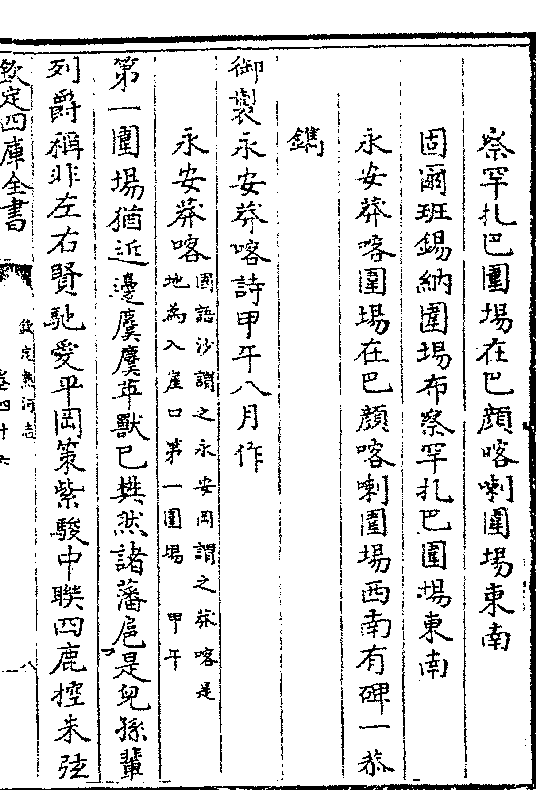 察罕扎巴圍場在巴顔喀喇圍場東南
固爾班錫納圍場布察罕扎巴圍場東南
永安莽喀圍場在巴顔喀喇圍場西南有碑一恭
鐫
御製永安莽喀詩甲午八月作
永安莽喀國語沙謂之永安岡謂之莽喀是
地為入崖口第一圍場 甲午
第一圍場猶近邊麌麌䍧獸已㷳然諸藩扈是兒孫輩
列爵稱非左右賢馳愛平岡策紫駿中聯四鹿控朱弦
欽定四庫全書
欽定熱河志
卷四十六
八